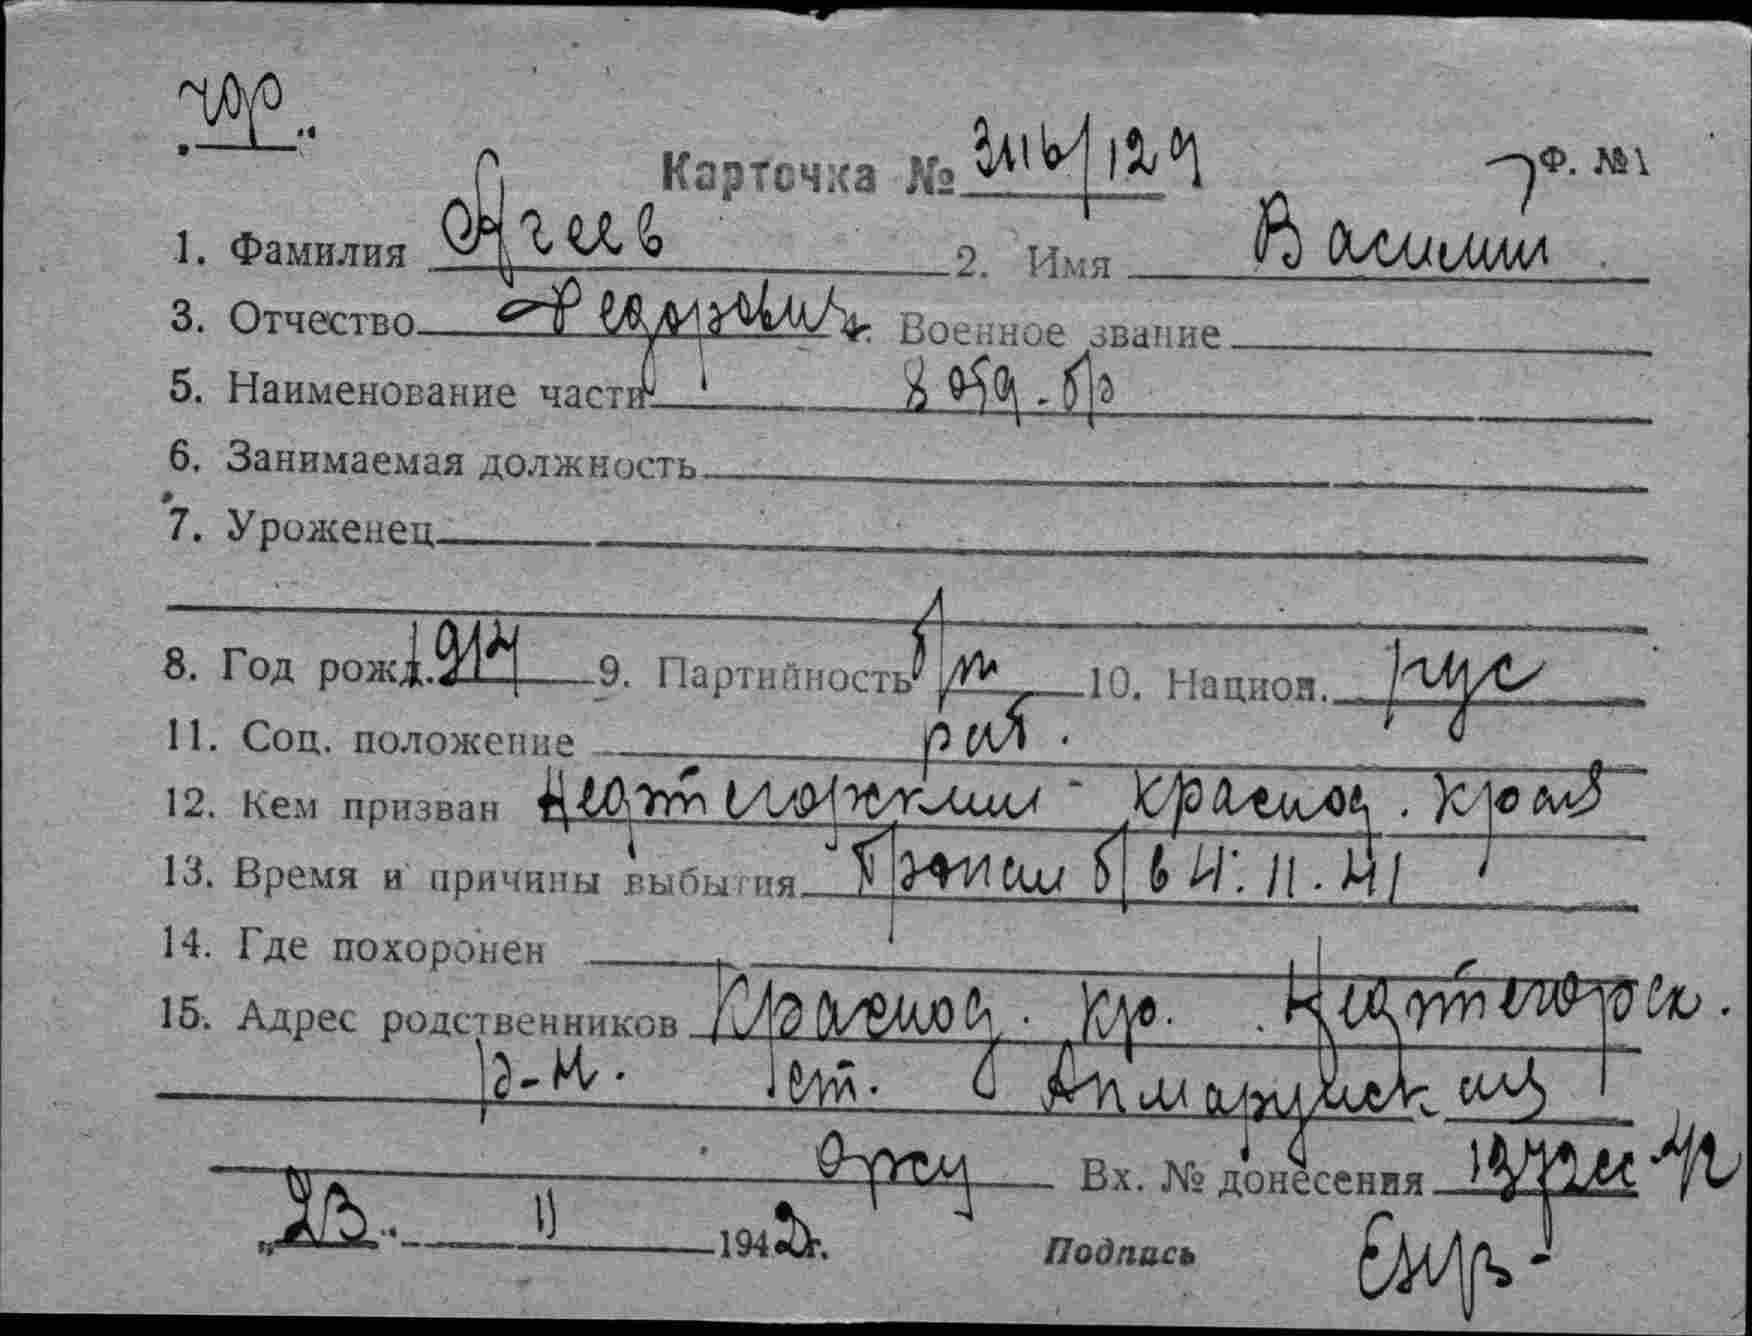 Карточка № 3116/129 Ф. №1
1. Фамилия Агеев 2. Имя Василий
3. Отчество Федорович 4. Военное звание
5. Наименование части 8 отд. бр
6. Занимаемая должность
7. Уроженец
8. Год рожд. 1917 9. Партийность б/п 10. Национ. рус
11. Соц. положение раб.
12. Кем призван Нефтегорским Краснод. края
13. Время и причины выбытия Пропал б/в 4.11.41
14. Где похоронен
15. Адрес родственников Краснод. кр. Нефтегорск.
р-н. ст. Апшеронская
Вх. № донесения
„23" 11 1942г. Подпись